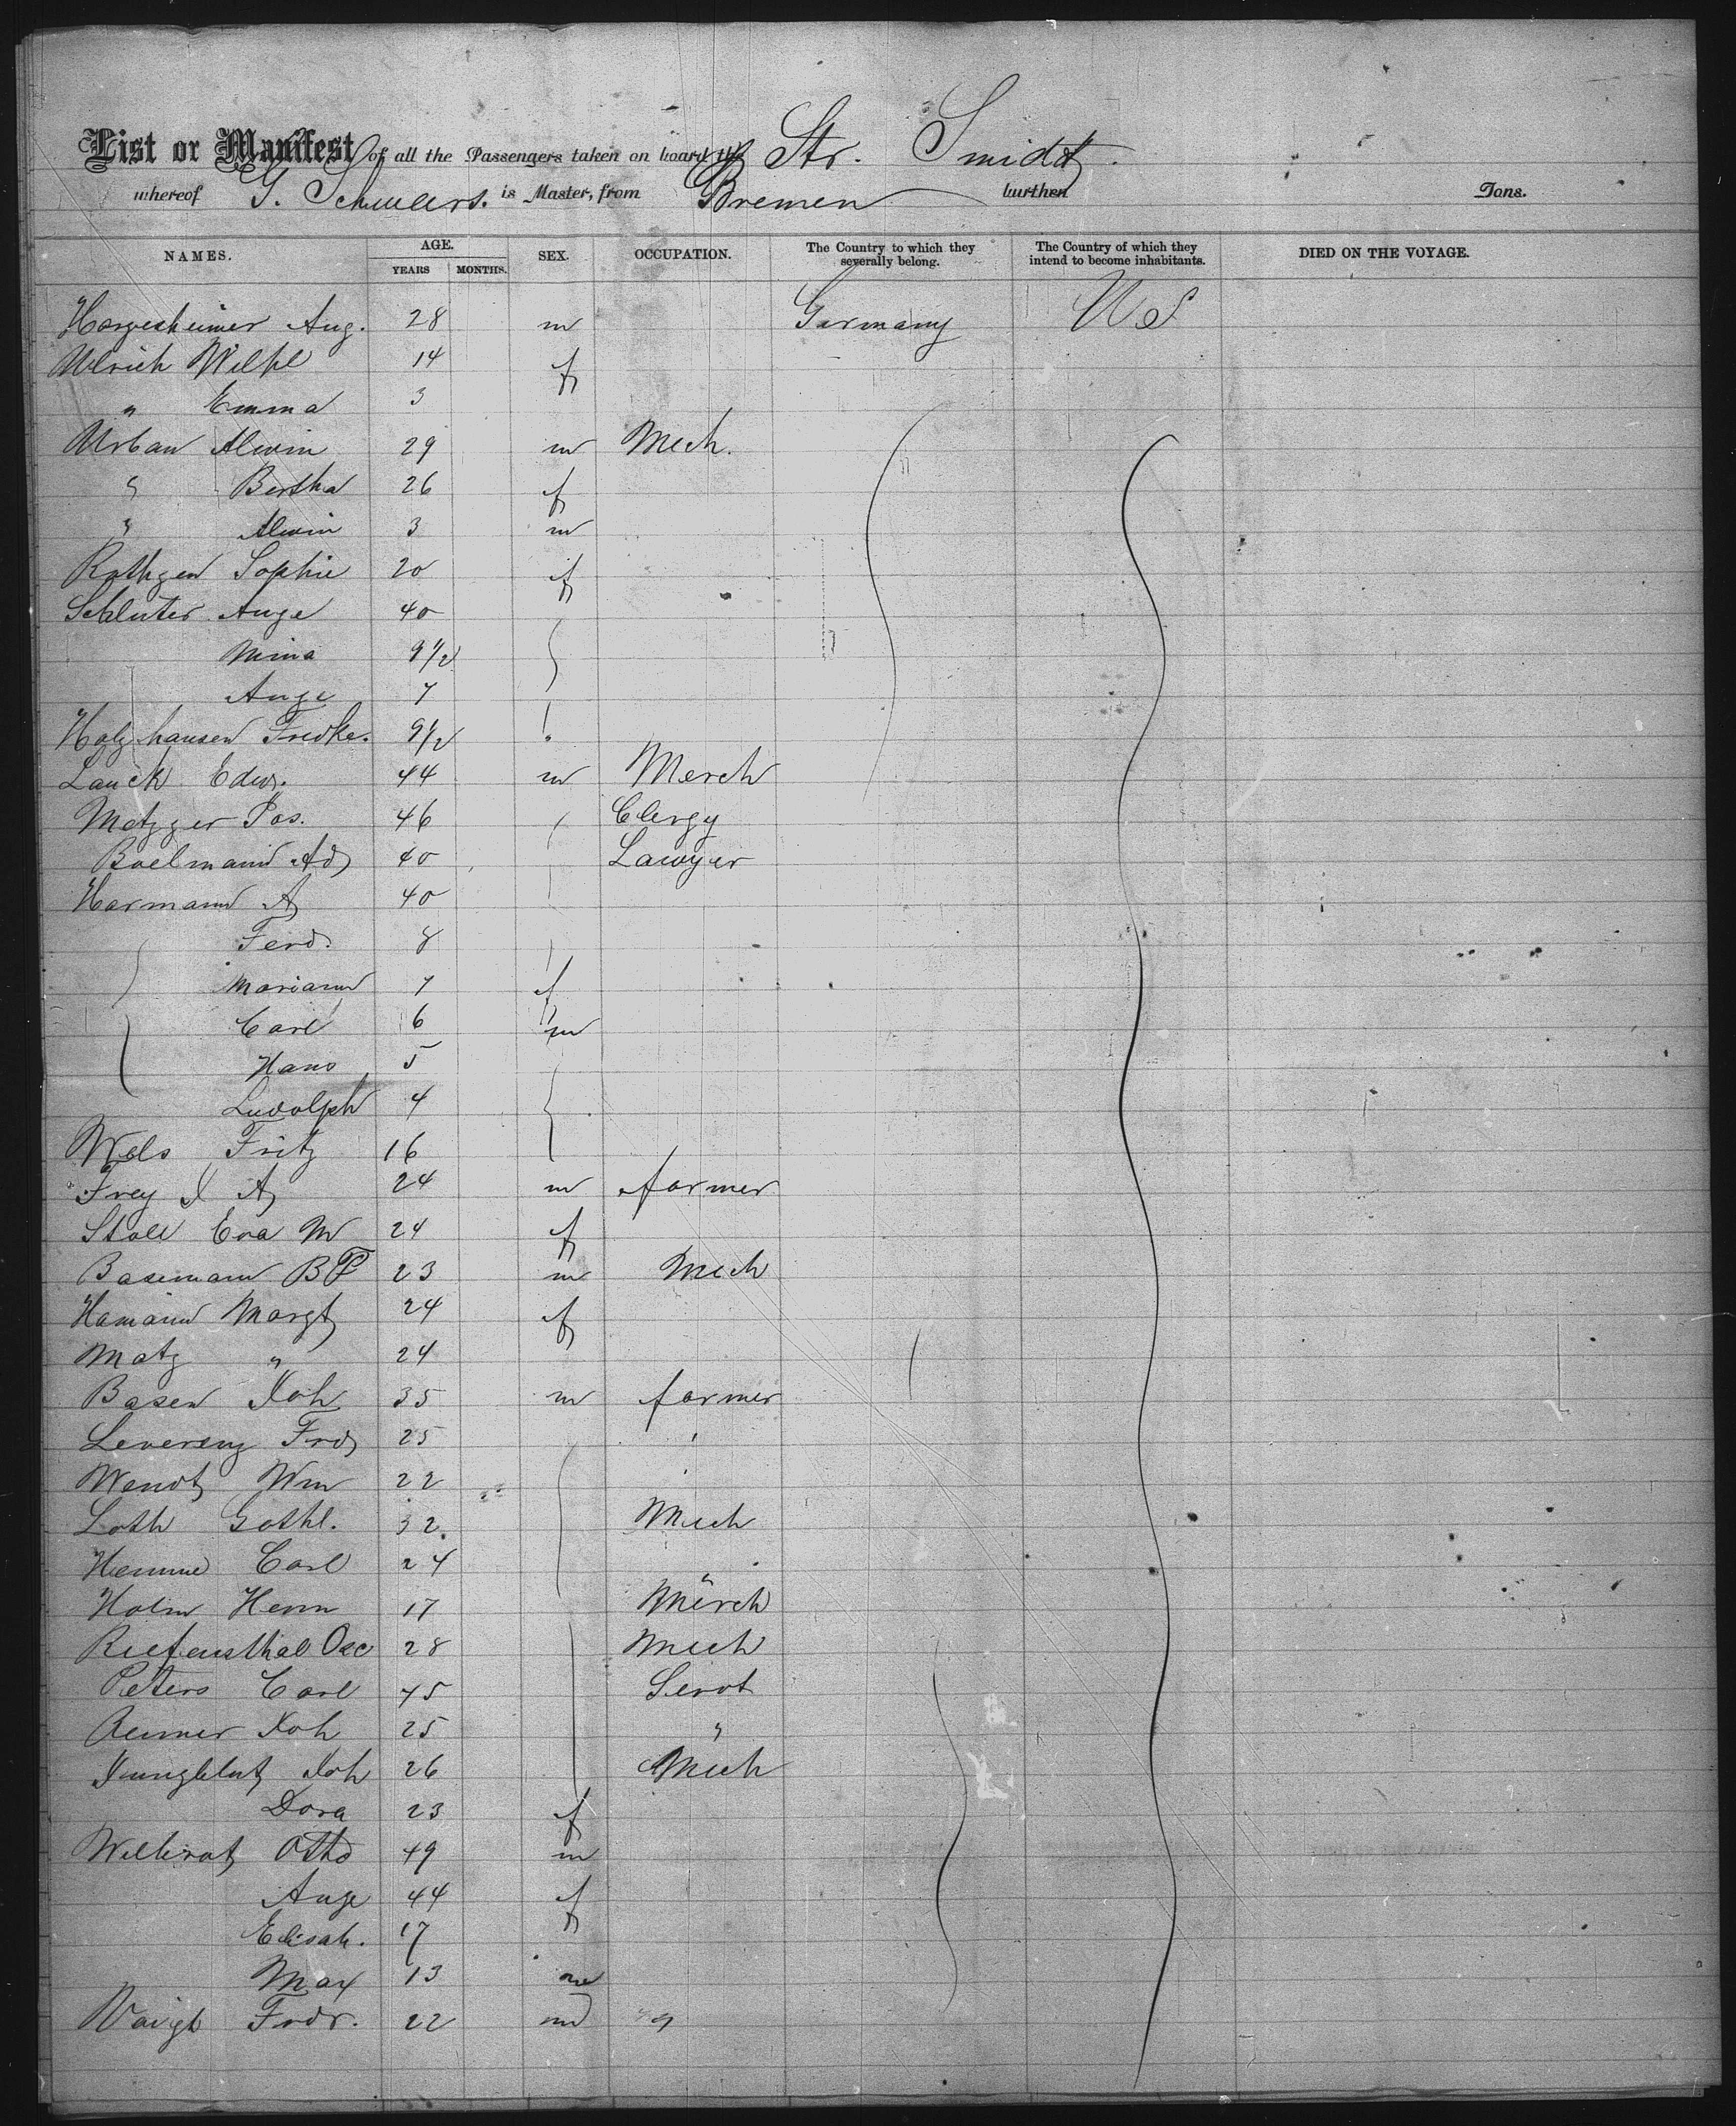 List or Manifest of all the Passengers taken on board the Str. Smidt.
whereof G. Schuuers. is Master, from Bremen burthen Tons.
NAMES. AGE. YEARS MONTHS. SEX. OCCUPATION. The Country to which they severally belong. The Country of which they intend to become inhabitants. DIED ON THE VOYAGE.
Hargesheimer Aug. 28 m Germany US
Ulrich Wilhl 14 f
" Emma 3
Urban Alwin 29 m Mech.
" Bertha 26 f
" Alwin 3 m
Rathgen Sophie 20 f
Schluter Auge 40
Mina 9 1/2
Auge 7
Holzhausen Fredke. 9 1/2
Lauck Edw. 44 m Merch
Metzger Jos. 46 Clergy
Boelmann Ad 40 Lawyer
Harmann A 40
Ferd. 8
Mariann 7 f
Carl 6 m
Hans 5
Ludolph 4
Wels Fritz 16
Frey J A 24 m farmer
Stoll Eva M 24 f
Basemann B F 23 m Mech
Hamann Margt 24 f
Matz " 24
Basen Joh 35 m farmer
Leverenz Frd 25
Wendt Wm 22
Loth Gothl. 32 Mech
Hemme Carl 24 "
Holm Herm 17 Merch
Riefensthal Osc 28 Mech
Peters Carl 45 Servt
Reimer Joh 25 "
Jungblut Joh 26 Mech
Dora 23 f
Otto 49 m
Auge 44 f
Elisab. 17
Max 13 m
Voigt Frdr. 22 m "